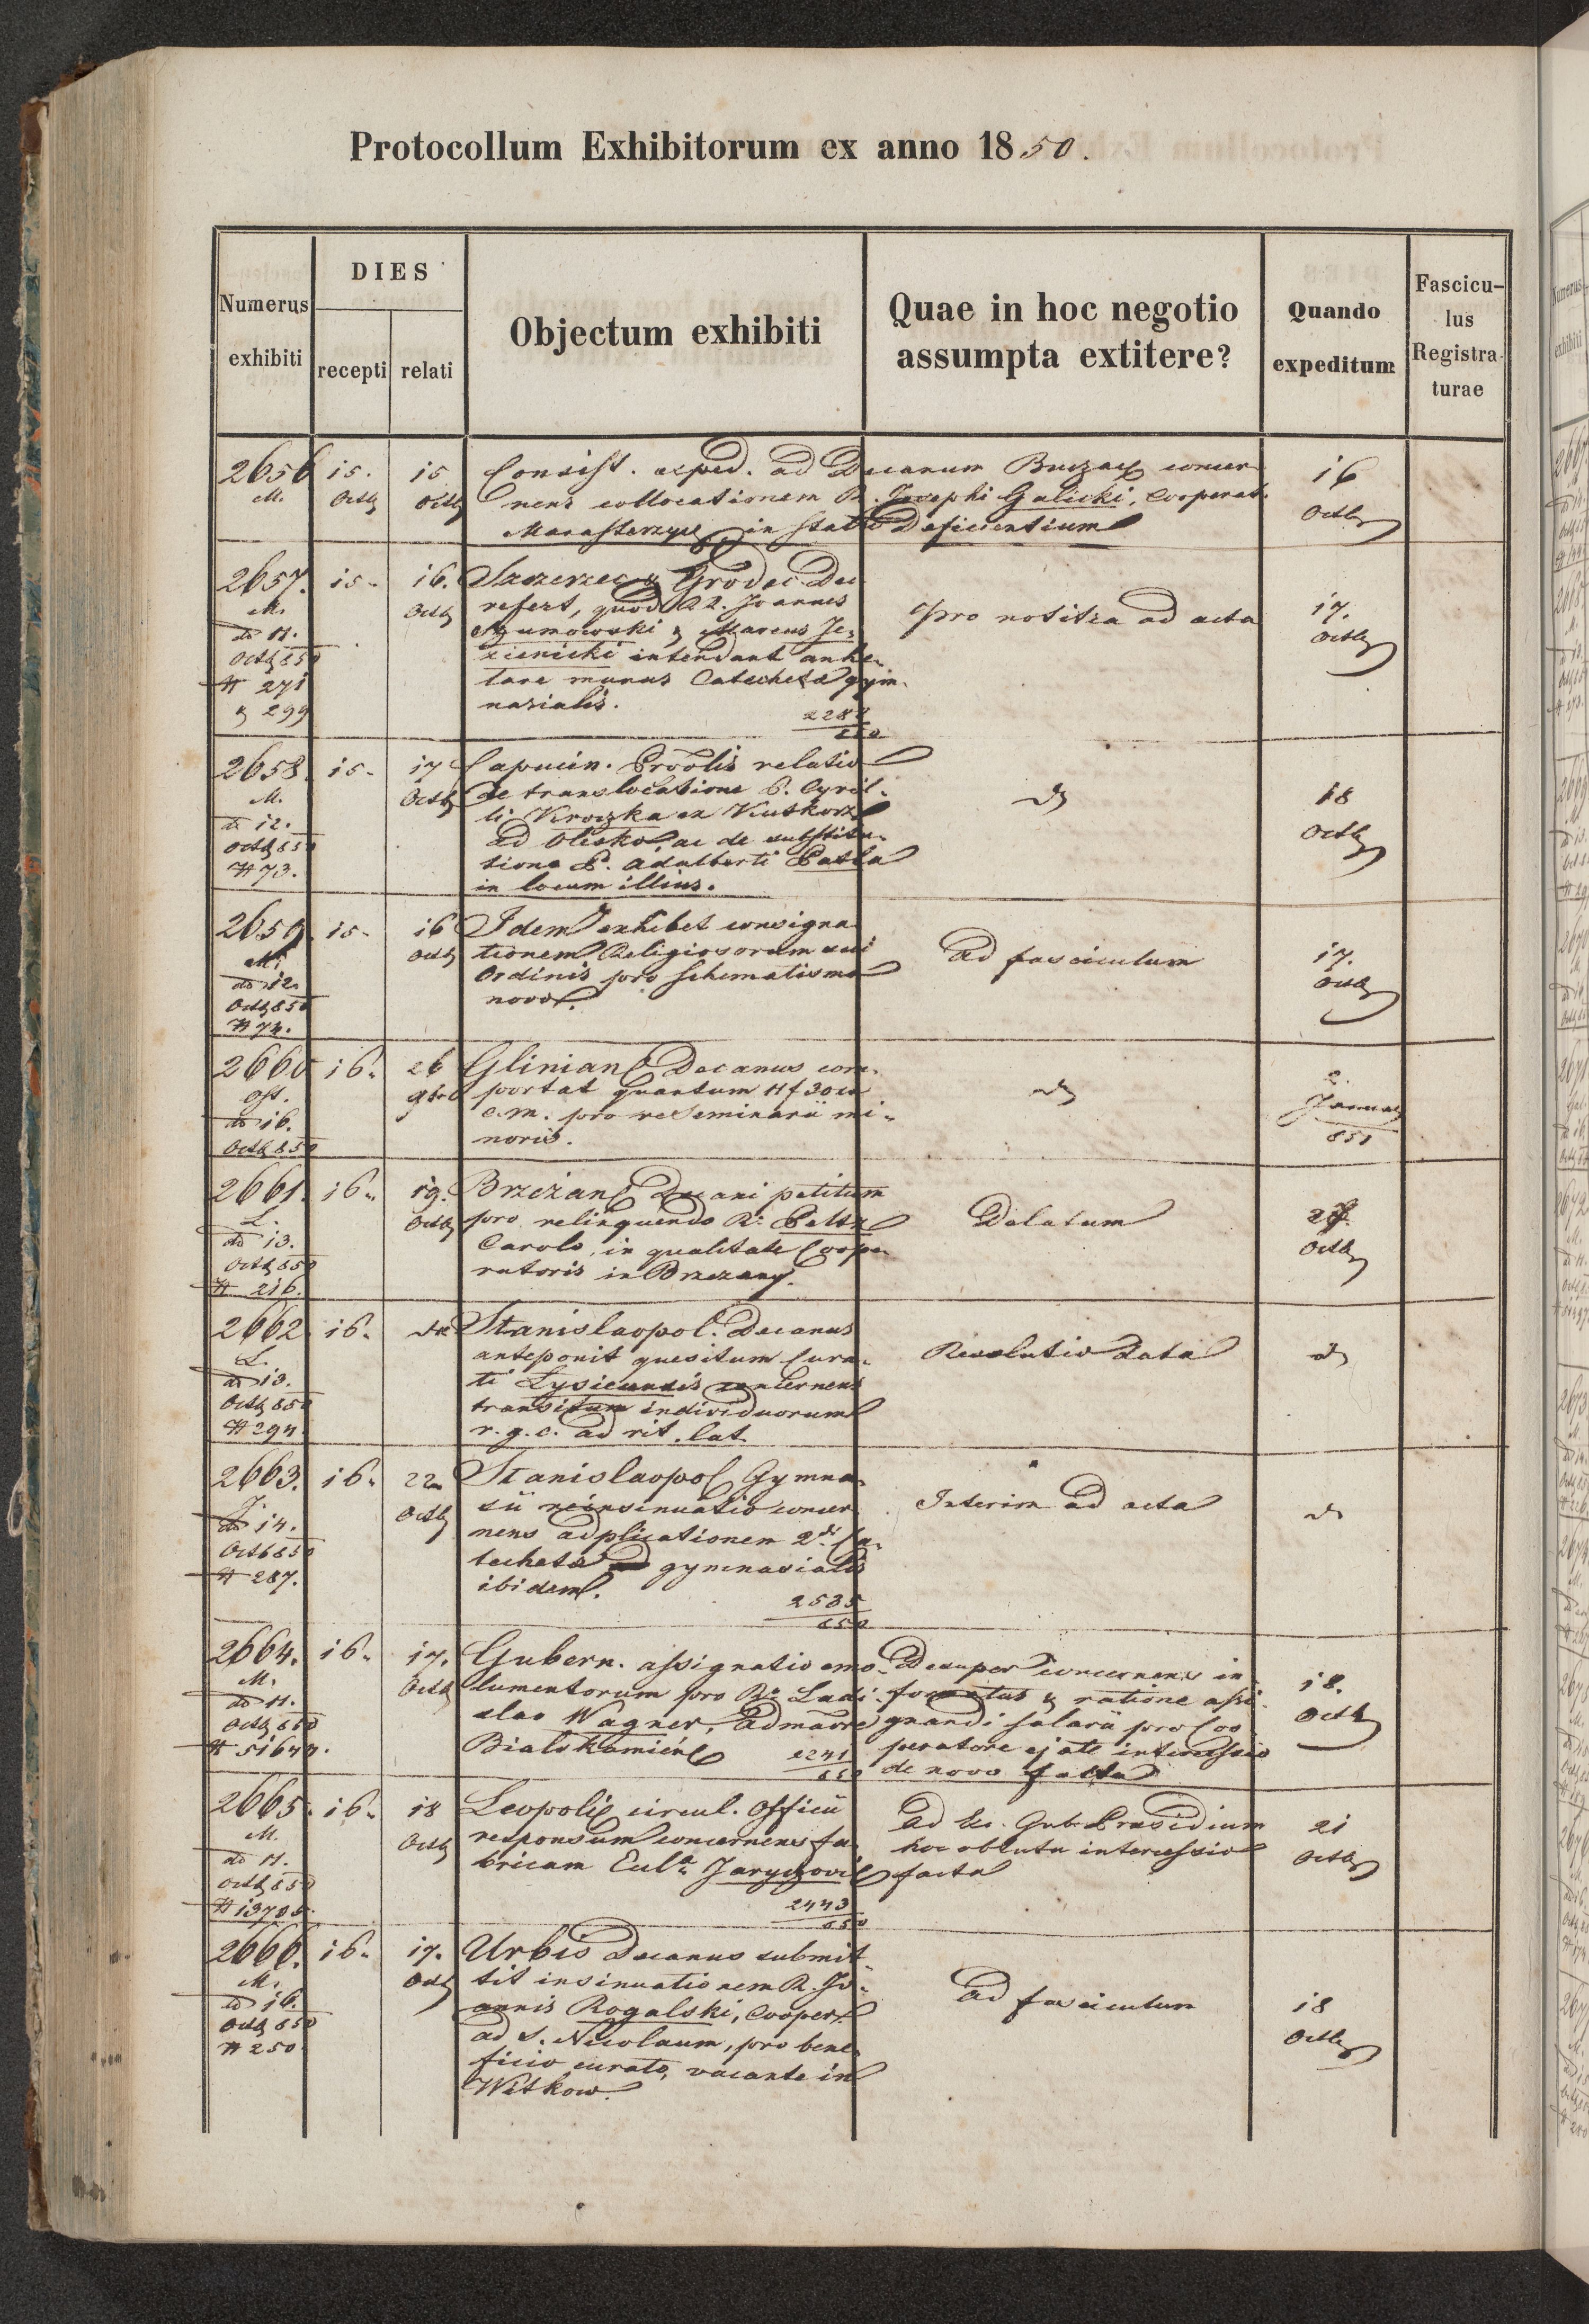 Protocollum Exhibitorum ex anno 1850.
Numerus exhibiti
DIES
recepti
relati
Objectum exhibiti
Quae in hoc negotio
assumpta extitere?
Quando
expeditum
Fascicu-
lus
Registra-
turae
2656 15. 15
M. Octb Octb
Consist. exped. ad Decanum Buczacz concer-
nens collocationem R. Josephi Galicki, Cooperat.
in statu Deficientium
16
Octb
2657. 15. 16.
M. Octb
do 11.
Octb 850
# 271
& 299
Szczerzec & Grodec. Dec
refert, quod RR. Joannes
& Marcus Je-
zienicki intendant
tare munus Catechetae gym-
nasialis.
850
pro notitia ad acta
17.
Octb
2658. 15. 17
M. Octb
do 12.
Octb 850
# 73.
Capucin. Provlis relatio
de translocatione P. Cyril-
li Kroczka ex Kutkorz
ad Olesko, ac de substitu-
tione P. Adalberti
in locum illius.
do
18
Octb
2659. 15. 16
M. Octb
do 12.
Octb 850
# 74.
Idem exhibet consigna-
tionem Religiosorum sui
Ordinis pro schematismo
novo.
Ad fasciculum
17.
Octb
2660 16. 26
Ost. 9bro
do 16.
Octb 850
Glinian Decanus com-
portat quantum 11 f 30 xr
c.m. pro re Seminarii mi-
noris.
do
2.
Januar
851
2661. 16. 19.
L. Octb
do 13.
Octb 850
# 216.
Brzezan Decani petitum
pro relinquendo R. Peltz
Carolo, in qualitate Coope-
ratoris in Brzezany.
Delatum
Octb
2662. 16. do
L.
do 13.
Octb 850
# 294
Stanislaopol. Decanus
anteponit quesitum Cura-
ti Lysiecensis concernens
transitum individuorum
r. g. c. ad rit. lat.
Resolutio data
do
2663. 16. 22
J. Octb
do 14.
Octb 850
# 287.
Stanislaopol Gymna-
sii reinsinuatio concer-
nens adplicationem 2di Ca-
techetae gymnasialis
ibidem.
2535
850
Interim ad acta
do
2664. 16. 17.
M. Octb
do 11.
Octb 850
# 51644.
Gubern. assignatio emo-
lumentorum pro R. Ladi-
slao Wagner, Admatre
Bialokamień
2241
850
Desuper concernens in-
formatus & ratione assi-
gnandi salarii pro Coo-
peratore ejate intercessio
de novo facta
18.
Octb
2665. 16. 18
M. Octb
do 11.
Octb 850
Leopoli circul. Officii
responsum concernens fa-
bricam Eccla
2443
850
Ad Ex. Gub. Praesidium
hoc obtutu intercessio
facta
21
Octb
2666. 16. 17.
M. Octb
do 16.
Octb 850
# 250
Urbis Decanus submit-
tit insinuationem R. Jo-
annis Rogalski, Cooper.
ad S. Nicolaum, pro bene-
ficio curato, vacante in
Witkow.
Ad fasciculum
18
Octb